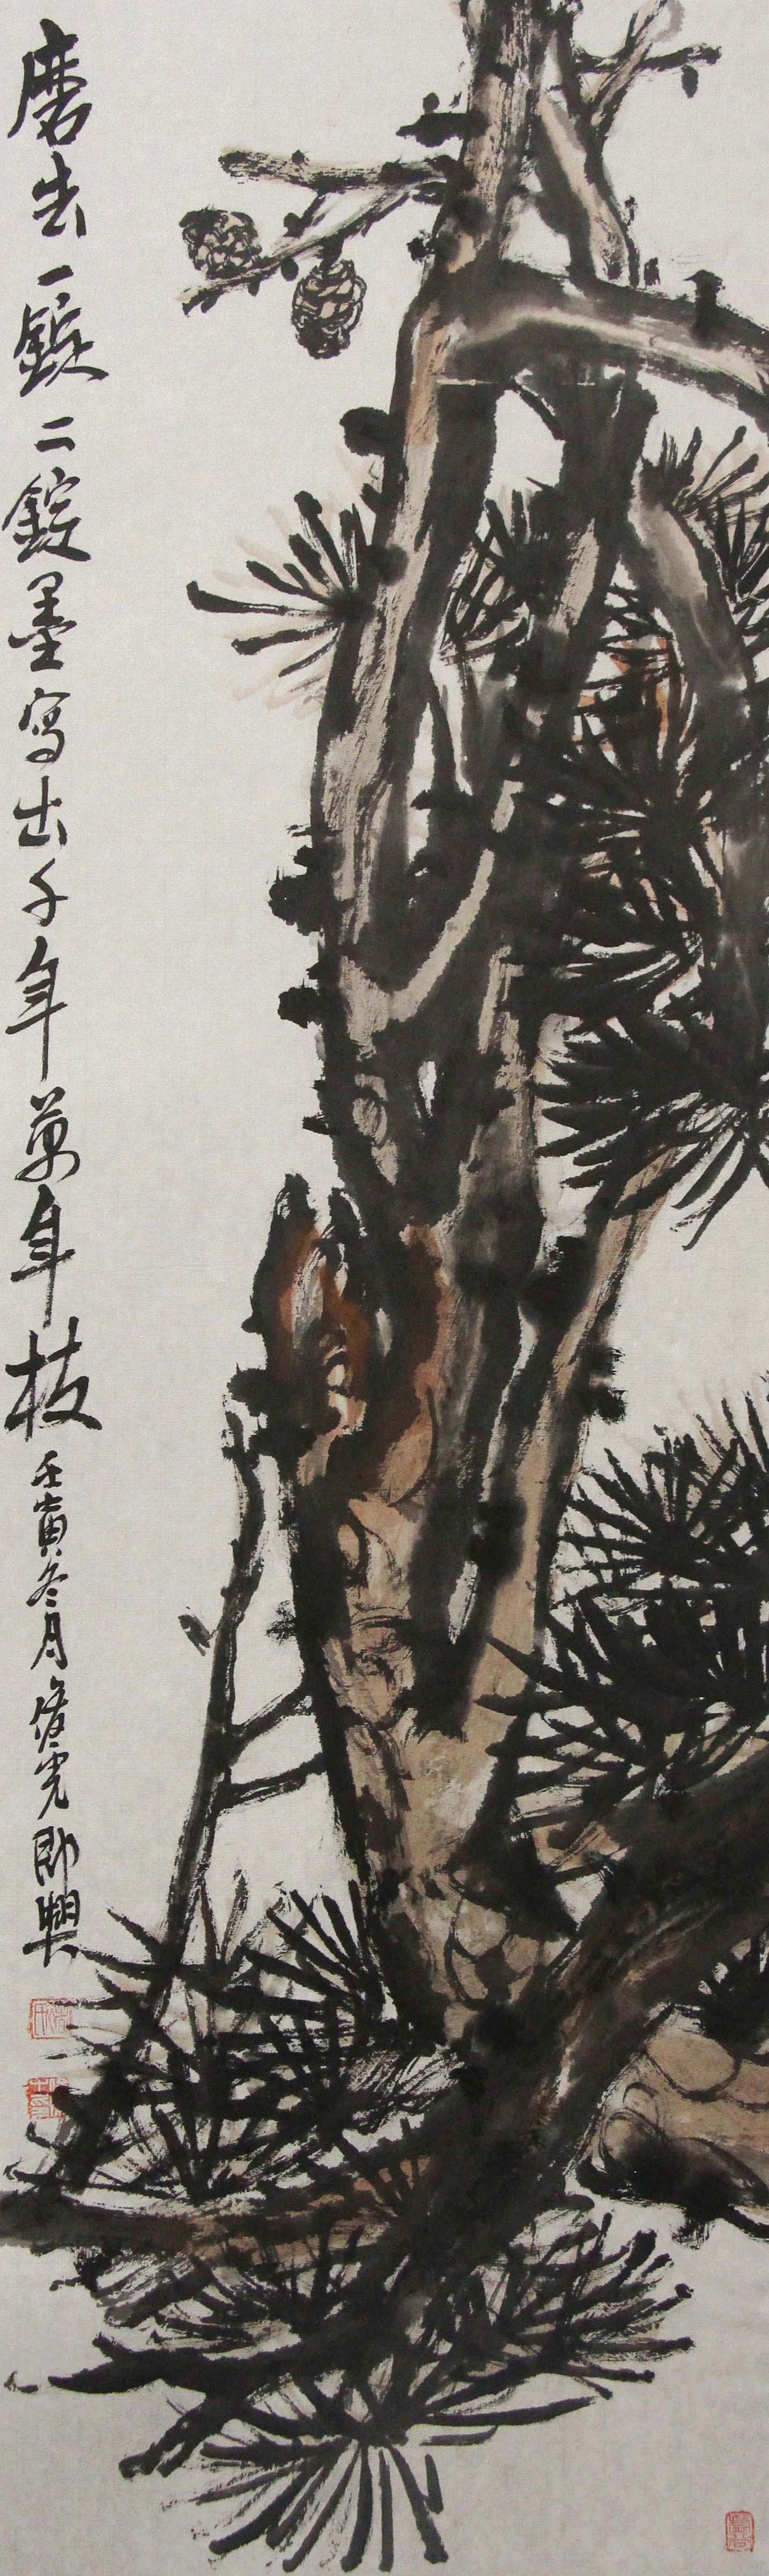 磨去一錠二錠墨寫出千年萬年枝壬寅冬月俊光即興